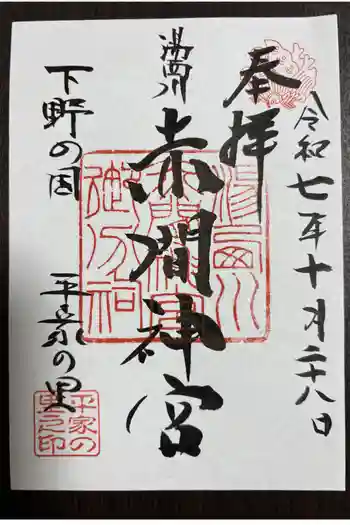 奉拝
令和七年十月二十八日
湯西川
赤間神宮
下野の国 平家の里
湯西川
赤間神宮
御分祠
平家の
里之印